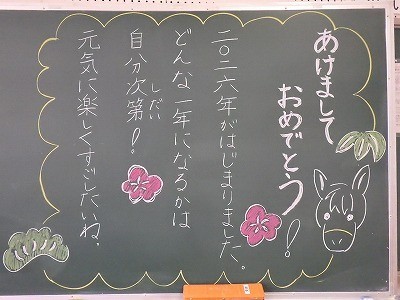 あけまして
おめでとう！
二〇二六年がはじまりました。
どんな一年になるかは
自分次第！
しだい
元気に楽しくすごしたいね。